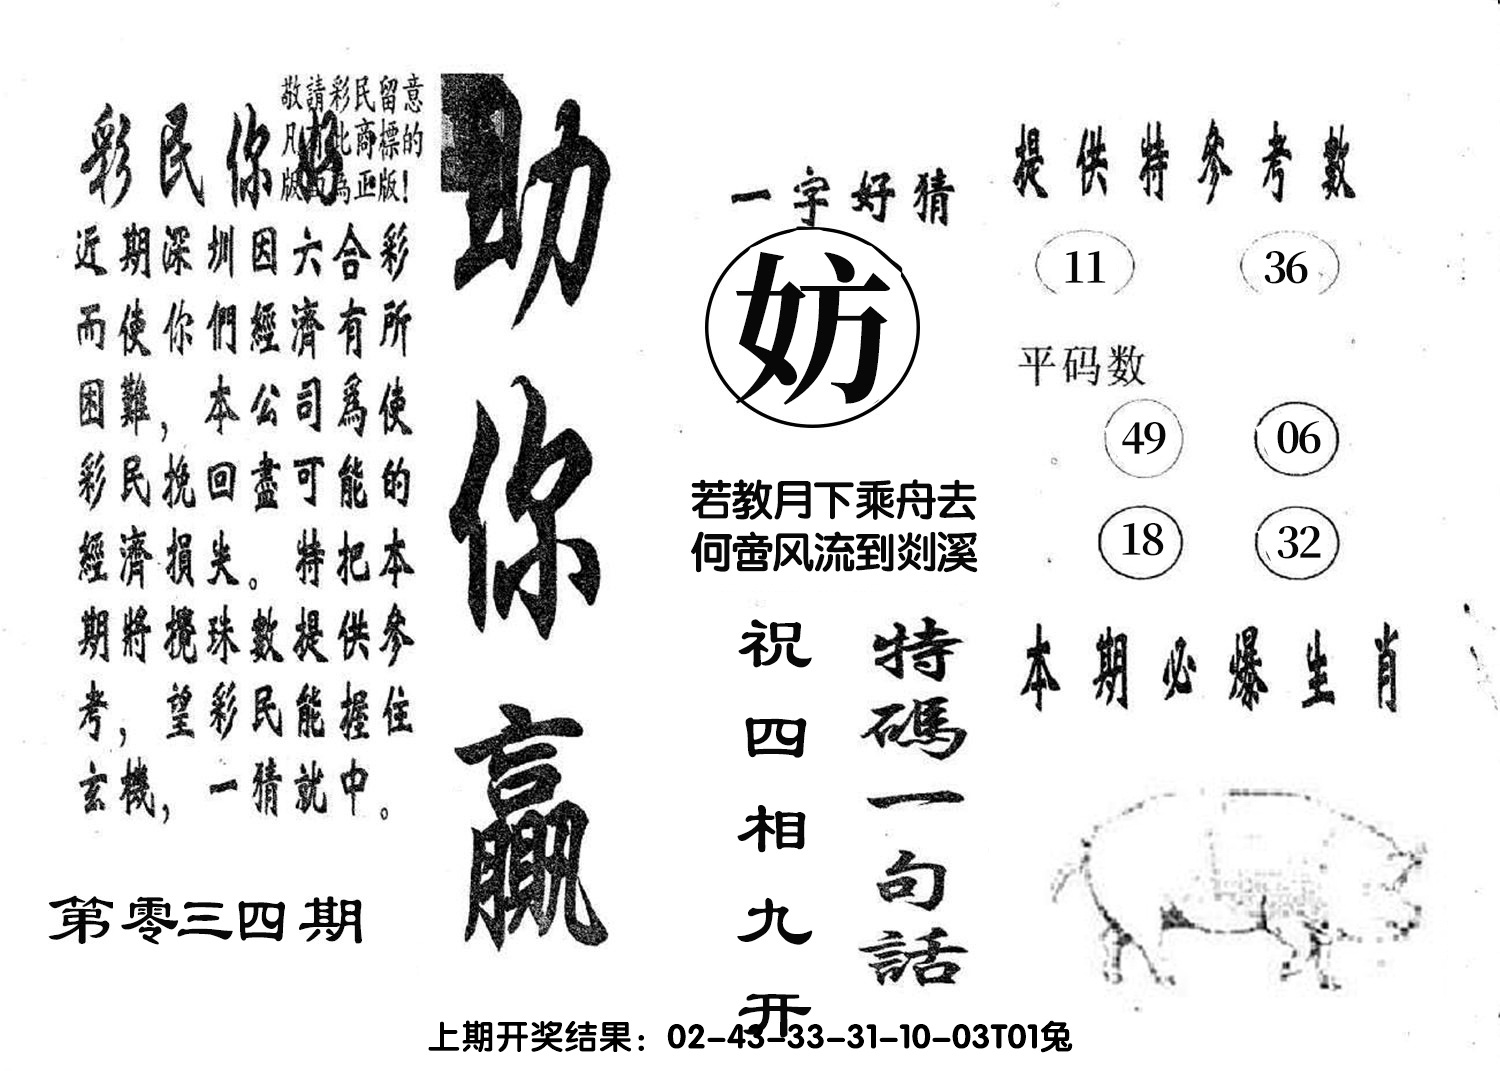 敬請彩民留意
凡有此商標的
版面為正版!
彩民你好
近期深圳因六合彩
而使你們經濟有所
困難，本公司為使
彩民挽回盡可能的
經濟損失。特把本
期將攪珠數提供參
考，望彩民能握住
玄機，一猜就中。
第零三四期
助你贏
一字好猜
妨
若教月下乘舟去
何啻风流到剡溪
祝四相九开
特碼一句話
提供特參考數
11 36
平码数
49 06
18 32
本期必爆生肖
上期开奖结果：02-43-33-31-10-03T01兔